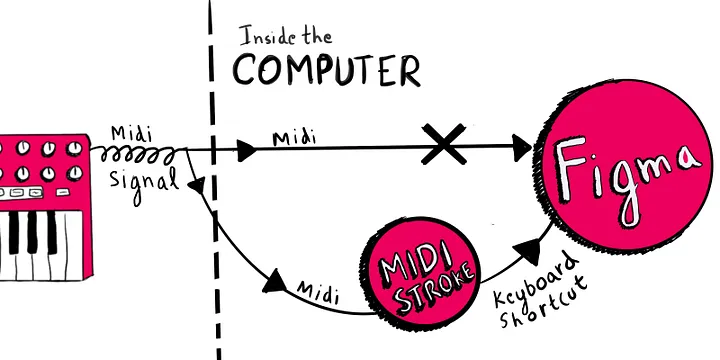 Inside the
COMPUTER
Midi
Signal
Midi
Figma
Midi
MIDI
STROKE
Keyboard
Shortcut